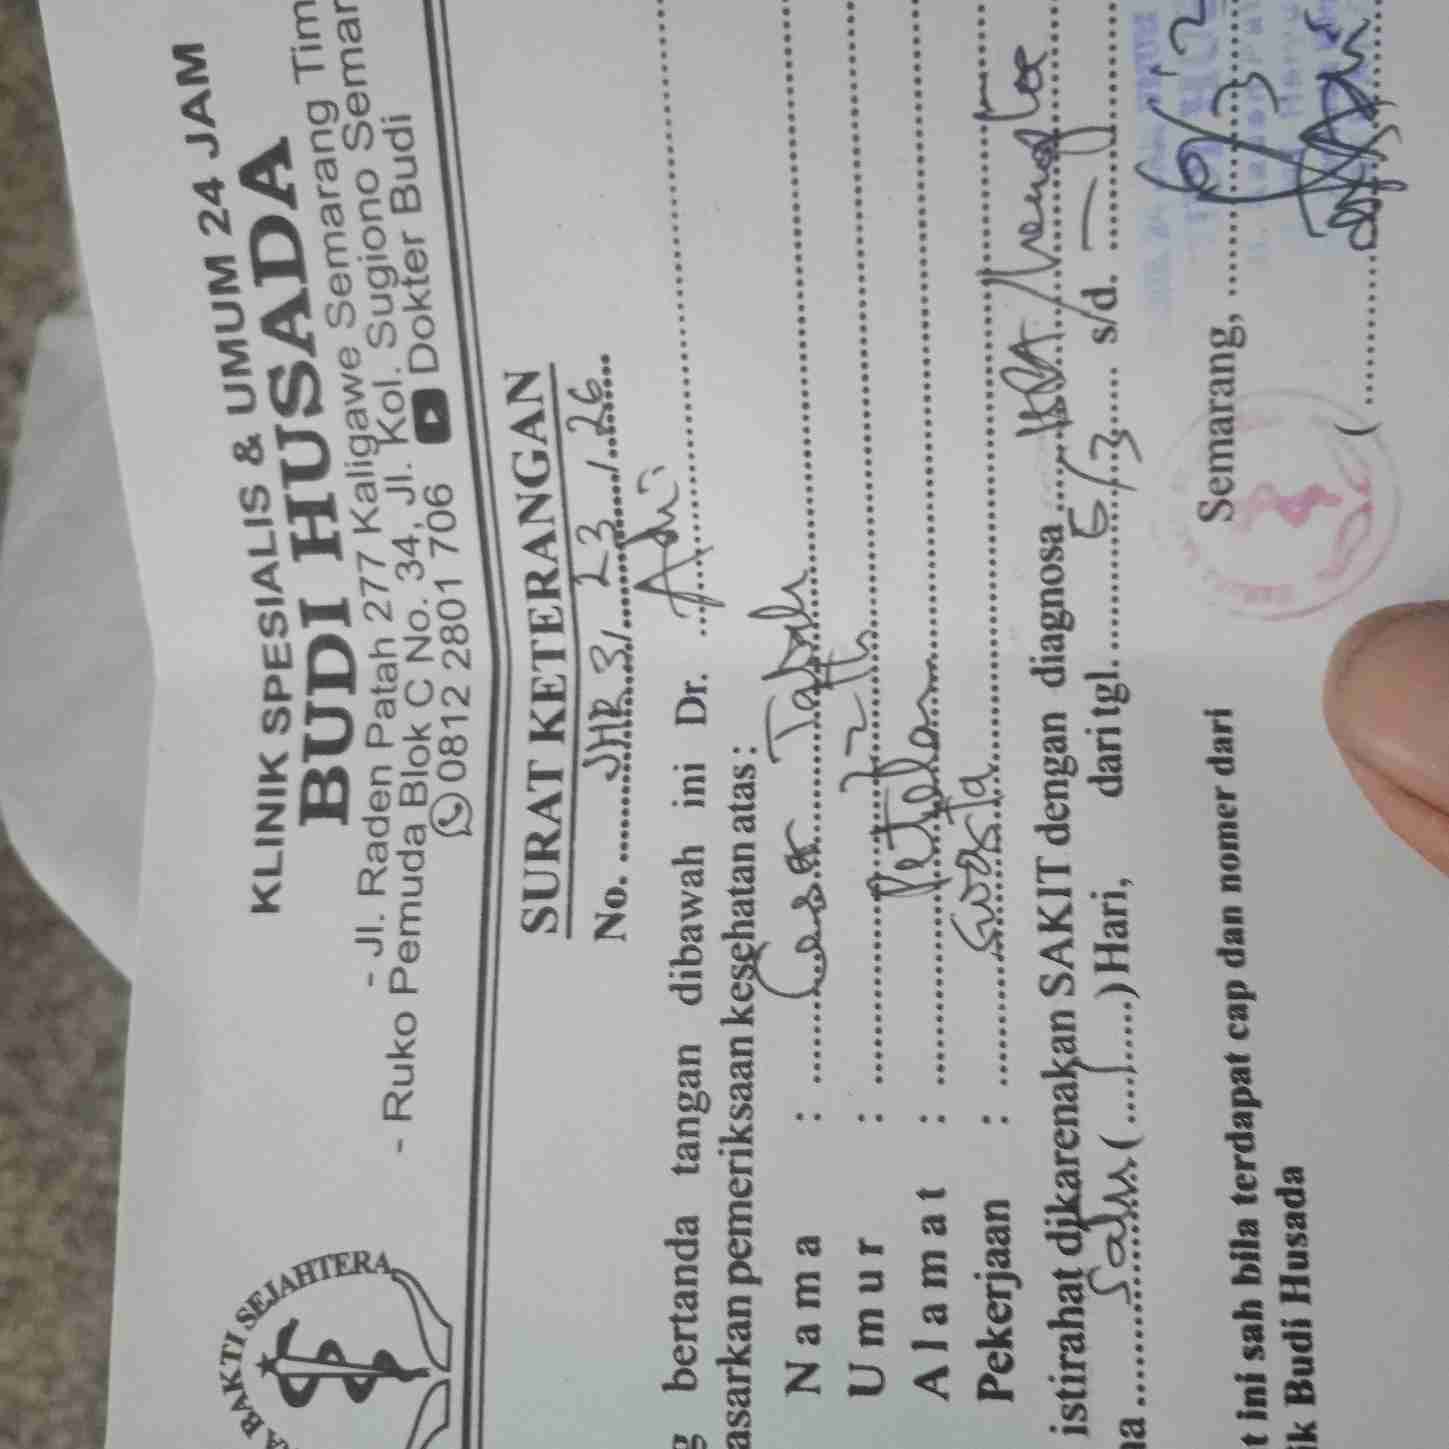 BAKTI SEJAHTERA
KLINIK SPESIALIS & UMUM 24 JAM
BUDI HUSADA
- Jl. Raden Patah 277 Kaligawe Semarang Tim
- Ruko Pemuda Blok C No. 34, Jl. Kol. Sugiono Semar
0812 2801 706 Dokter Budi
SURAT KETERANGAN
No. 31 23 / 26
bertanda tangan dibawah ini Dr. Adi
asarkan pemeriksaan kesehatan atas :
Nama :
Umur : 22 th
Alamat : Petelan
Pekerjaan : swasta
istirahat dikarenakan SAKIT dengan diagnosa
satu ( 1 ) Hari, dari tgl. 6/3 s/d. —
Semarang, 6/3 '2
t ini sah bila terdapat cap dan nomer dari
ik Budi Husada
(